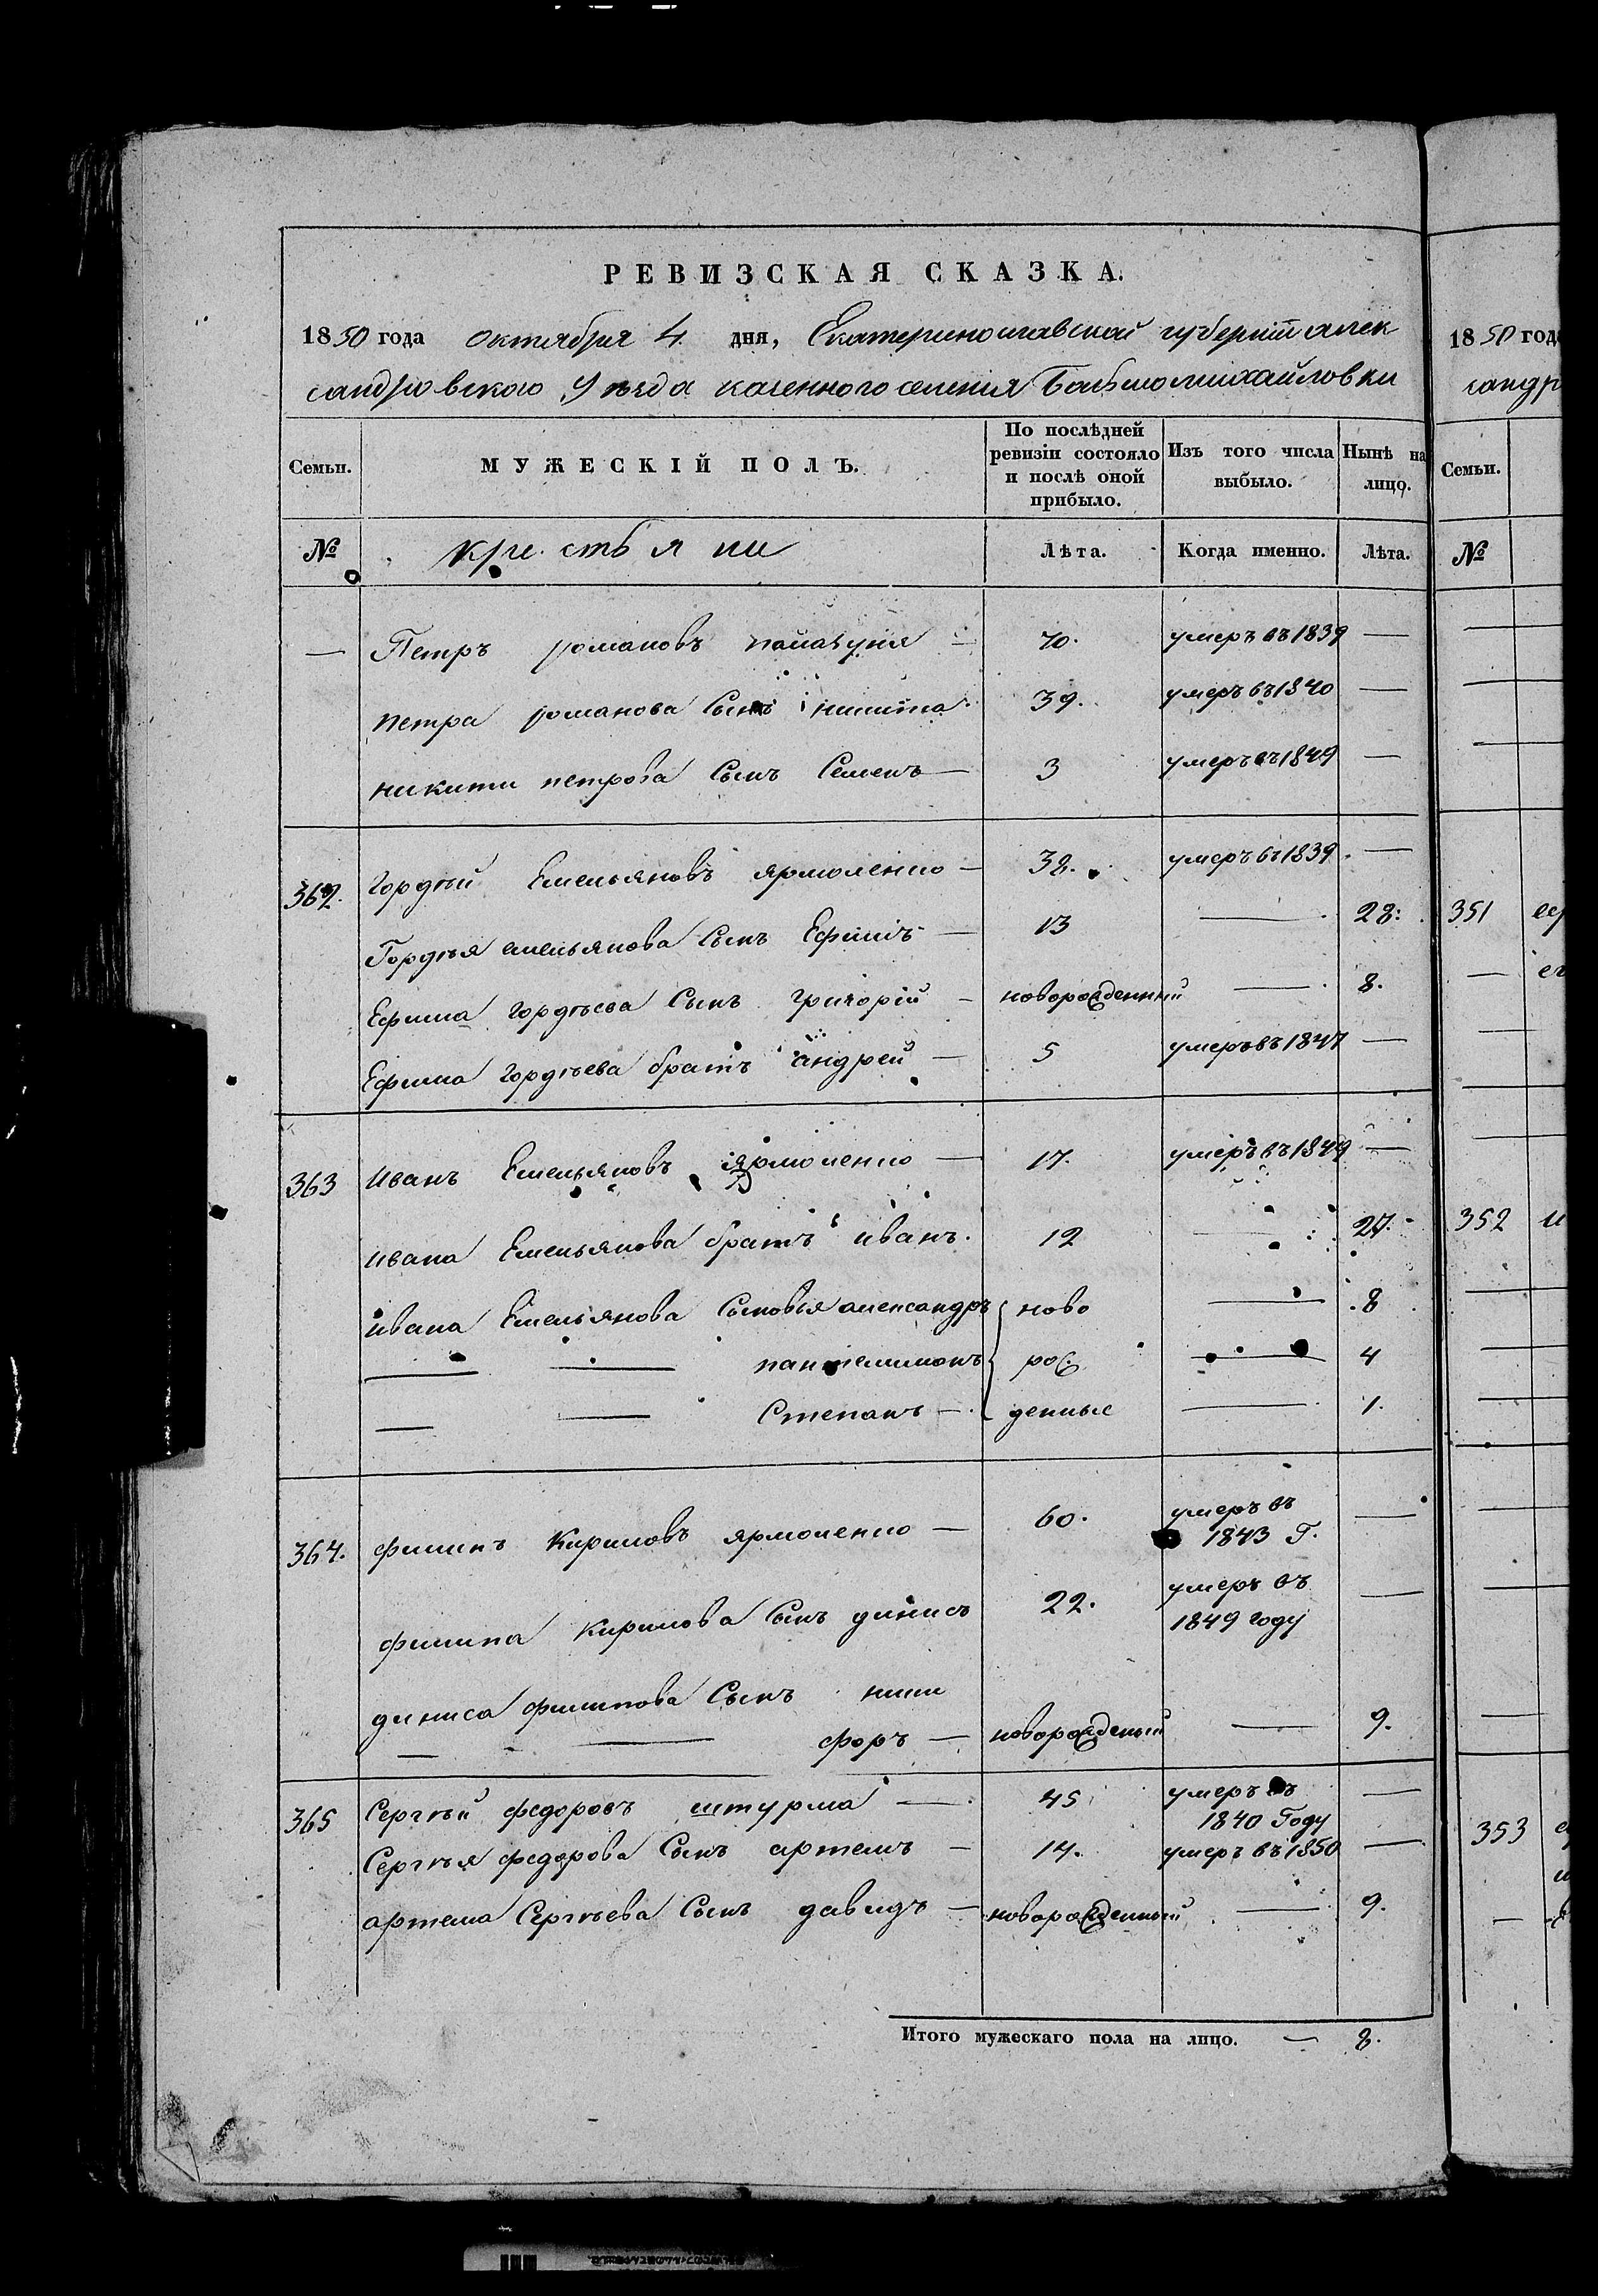 РЕВИЗСКАЯ СКАЗКА.
1850 года октября 4 дня, Екатеринославской губернiй алек
сандровского Уѣзда казенного селения Батьмомихайловки
Семьи. МУЖЕСКІЙ ПОЛЪ. По послѣдней ревизіи состояло и послѣ оной прибыло. Изъ того числа выбыло. Нынѣ на лицо.
№ крестьяни Лѣта. Когда именно. Лѣта.
— Петръ романовъ — 70. умеръ въ 1839 —
петра романова Сынъ никита 39. умеръ въ 1840 —
никити петрова Сынъ Семенъ — 3 умеръ въ 1849 —
362. Гордѣй Емельяновъ ярмоленко — 38. умеръ въ 1839. —
Гордѣя емельянова Сынъ Ефимъ — 13 — 28.
Ефима гордѣева Сынъ григорій — новорожденный — 8.
Ефима гордѣева братъ андрей — 5 умеръ въ 1847 —
363 иванъ Емельяновъ ярмоленко — 17. умеръ въ 1849 —
ивана Емельянова братъ иванъ. 12 — 27.
ивана Емельянова Сыновья александръ ново — 8
— — пантелимонъ рож — 4
— — Степанъ — денные — 1.
364. филипъ Кириловъ ярмоленко — 60. умеръ въ 1843 Г. —
филипа Кирилова Сынъ динисъ 22. умеръ въ 1849 году —
диниса филипова Сынъ ники
— — форъ — новорожденый — 9.
365 Сергѣй федоровъ штурма — 45 умеръ въ 1840 Году —
Сергѣя федорова Сынъ артемъ — 14. умеръ въ 1850 —
артема Сергѣева Сынъ давидъ — новорожденный — 9.
Итого мужескаго пола на лицо. — 8.
1850 год
сандр
Семьи.
№
351
352
353